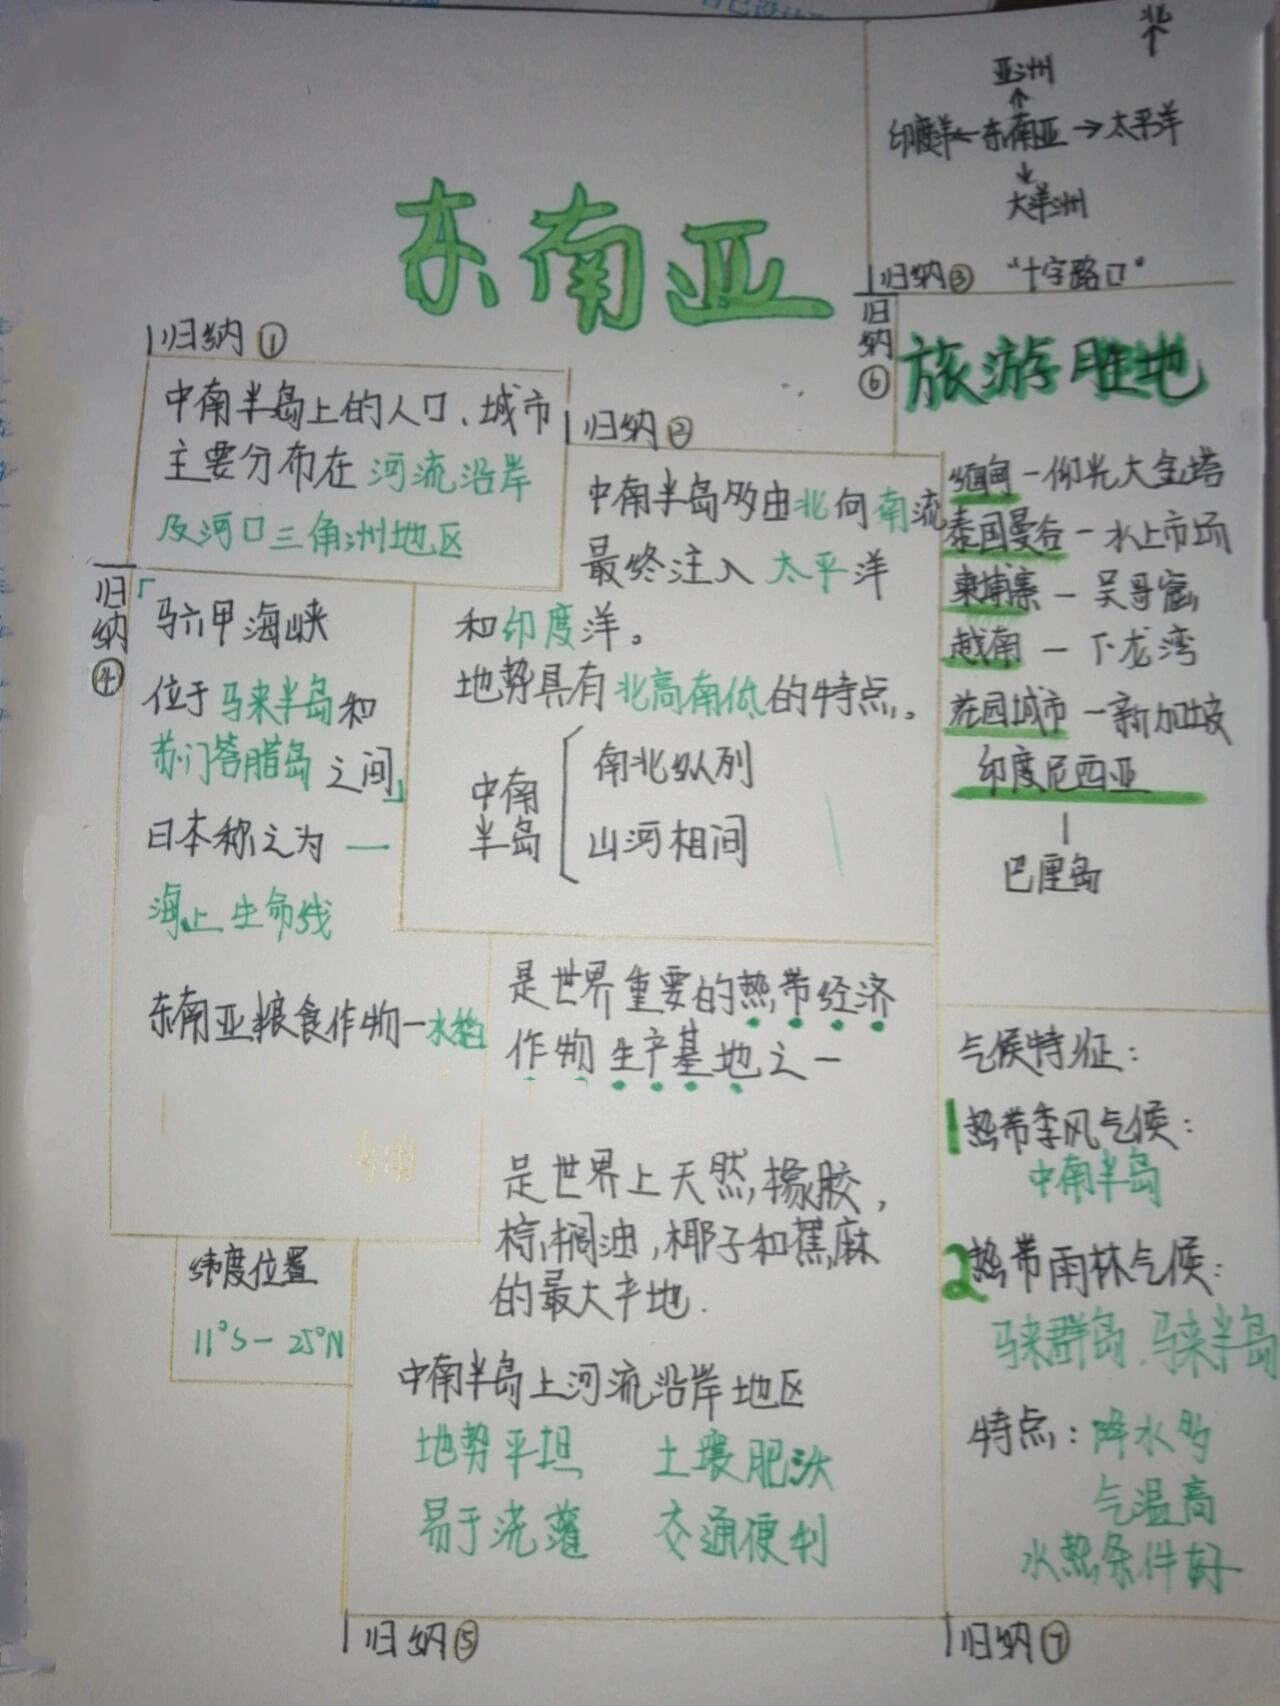 东南亚
北
↑
亚洲
↑
印度洋←东南亚→太平洋
↓
大洋洲
归纳③ “十字路口”
归纳①
中南半岛上的人口、城市
主要分布在 河流沿岸
及河口三角洲地区
归纳②
中南半岛多由北向南流
最终注入 太平洋
和印度洋。
地势具有北高南低的特点。
中南半岛
南北纵列
山河相间
归纳④
「马六甲海峡
位于马来半岛和
苏门答腊岛 之间」
日本称之为 —
海上生命线
东南亚粮食作物—水稻
纬度位置
11°S—25°N
是世界重要的热带经济
作物 生产基地之一
是世界上天然橡胶,
棕榈油,椰子和蕉麻
的最大产地.
中南半岛上河流沿岸地区
地势平坦 土壤肥沃
易于浇灌 交通便利
归纳⑤
归纳⑥
旅游胜地
缅甸—仰光大金塔
泰国曼谷—水上市场
柬埔寨—吴哥窟
越南—下龙湾
花园城市—新加坡
印度尼西亚
|
巴厘岛
气候特征:
1热带季风气候:
中南半岛
2热带雨林气候:
马来群岛、马来半岛
特点:降水多
气温高
水热条件好
归纳⑦